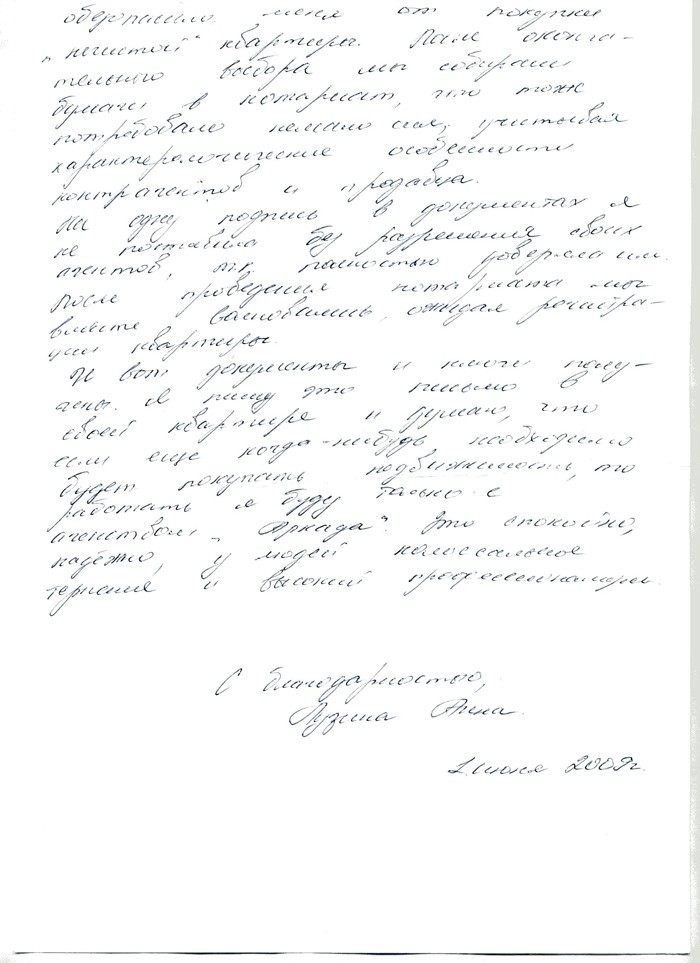 обезопасило меня от покупки
„нечистой" квартиры. После оконча-
тельного выбора мы собирали
бумаги в нотариат, что тоже
потребовало немало сил, учитывая
характерологические особенности
контрагентов и продавца.
Ни одну подпись в документах я
не поставила без разрешения своих
агентов, т.к. полностью доверяла им.
После проведения нотариата мы
вместе волновались, ожидая регистра-
ции квартиры.
И вот документы и ключи полу-
чены. Я пишу это письмо в
своей квартире и думаю, что
если еще когда-нибудь необходимо
будет покупать недвижимость, то
работать я буду только с
агентством „Аркада". Это спокойно,
надёжно, у людей колоссальное
терпение и высокий профессионализм.
С благодарностью,
Лузина Анна.
2 июня 2009г.